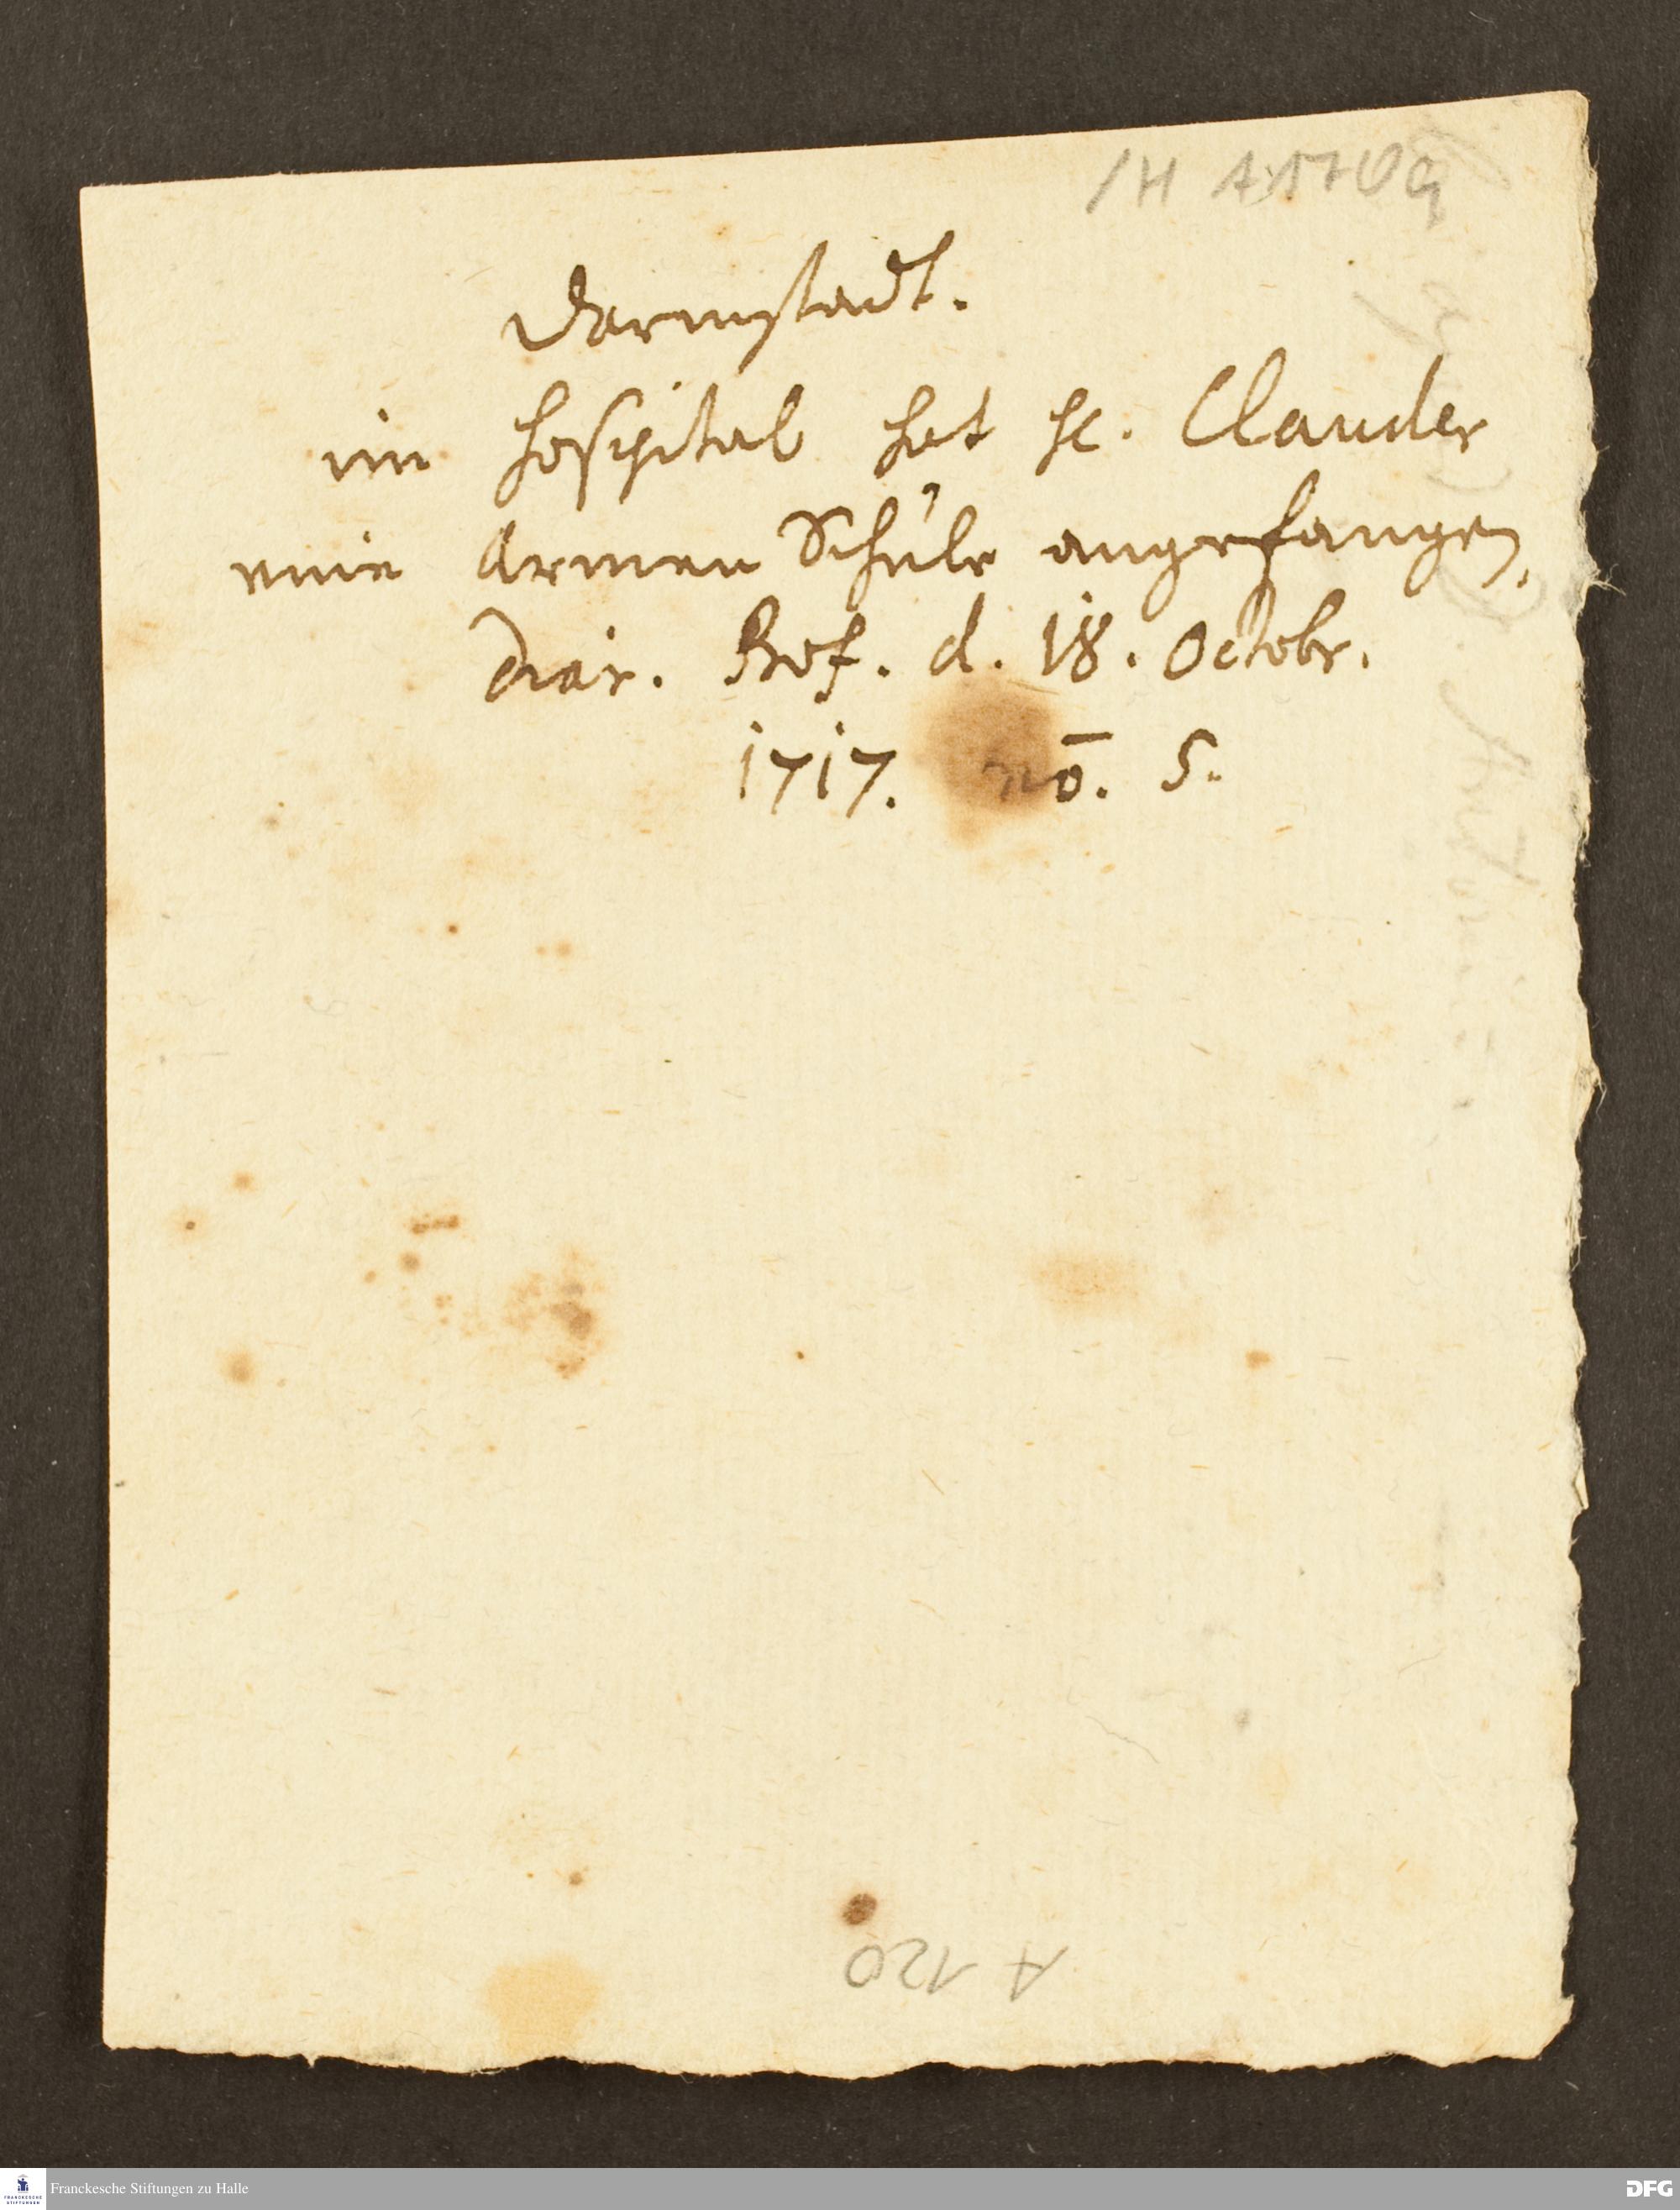 Darmstadt.
im Hospital hat H. Clauder
eine Armen Schule angefangen,
Diar. d. 18. Octobr.
1717. nō. 5.
A 120
Franckesche Stiftungen zu Halle
FRANCKESCHE
STIFTUNGEN
DFG